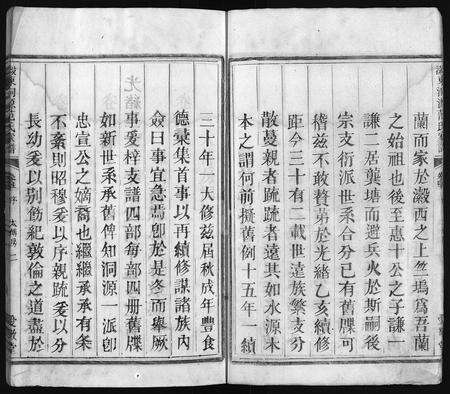 蘭而家於瀫西之上塢爲吾蘭
之始祖也後至惠十公之子謙一
謙二居龔塘而避兵火於斯嗣後
宗支衍派世系合分已有舊牒可
稽兹不敢贅弟於光緒乙亥續修
距今三十有二載世遠族繁支分
散蔓親者疏疏者遠其如水源木
本之謂何前擬舊例十五年一續
三十年一大修兹屆秋成年豐食
德彚集首事以再續修謀諸族內
僉曰事宜急葛卽於是冬而舉厥
事爰梓支譜四部每部四冊牒牒
如新世系承昔俾知洞源一派卽
忠宣公之嫡裔也繼繼承承有条
不紊則昭穆爰以序親疏爰以分
長幼爰以別飭紀敦倫之道盡於